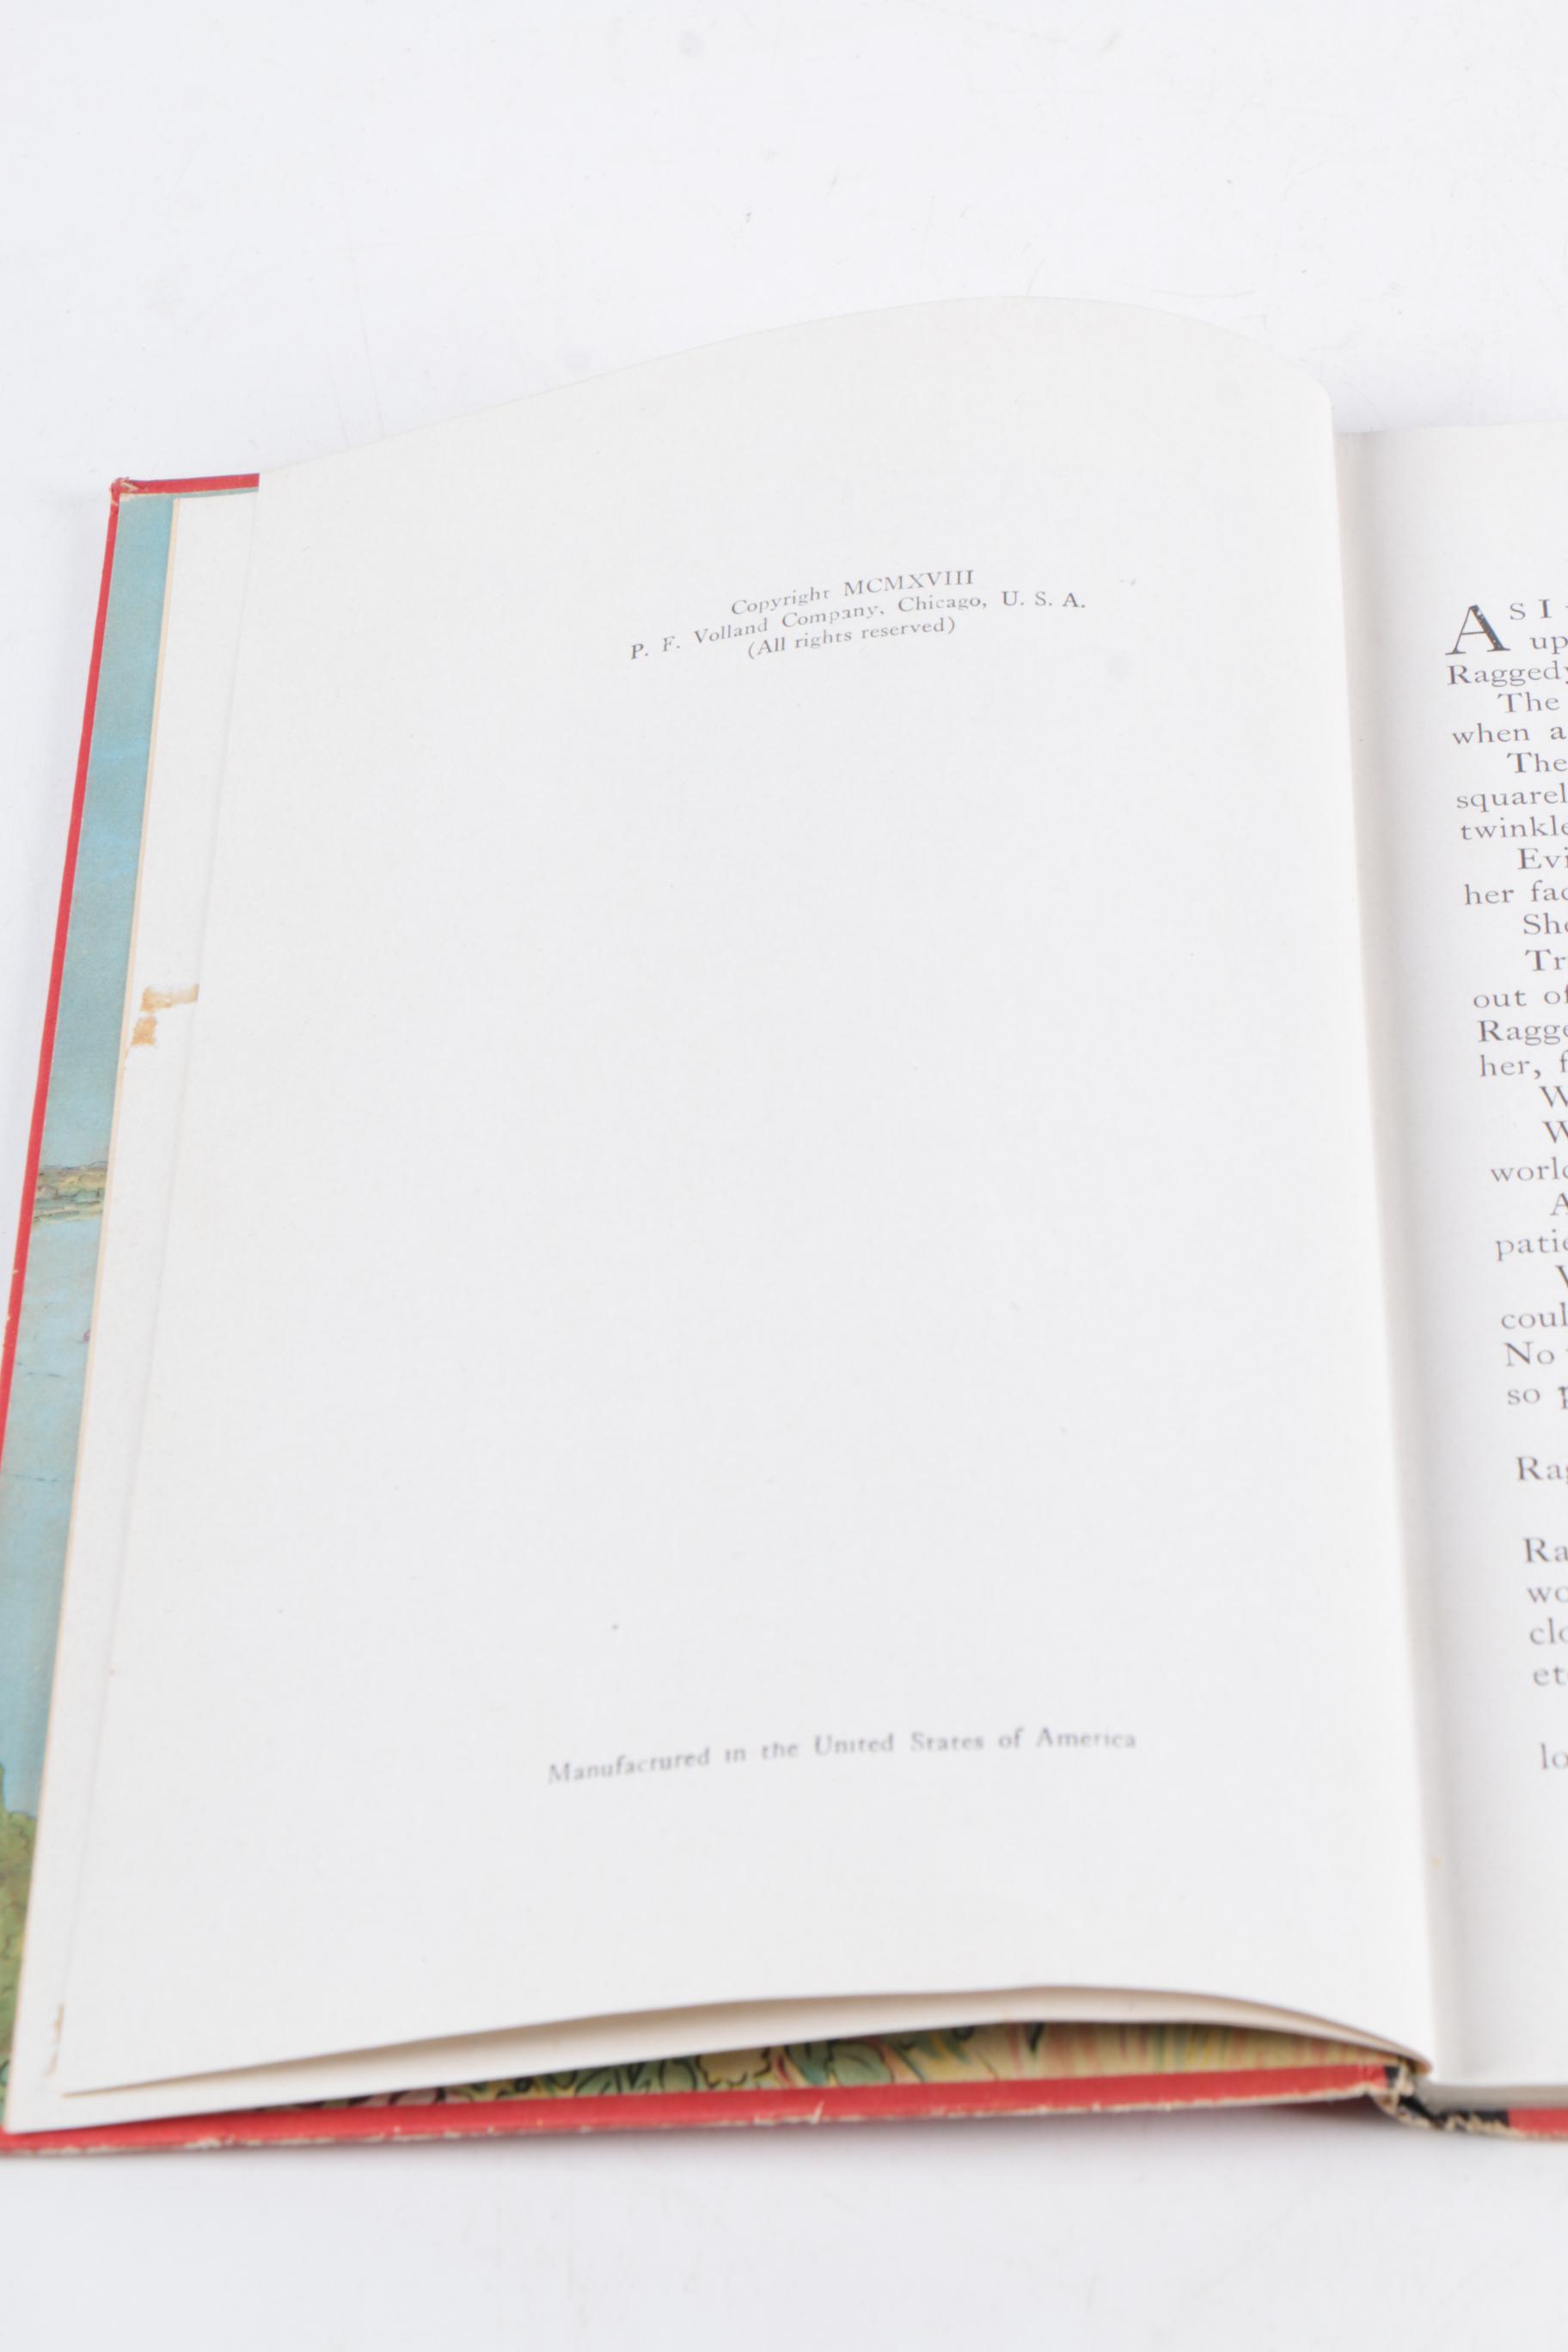 Copyright MCMXVIII
P. F. Volland Company, Chicago, U. S. A.
(All rights reserved)
Manufactured in the United States of America
A S I
up
Raggedy
The
when a
The
squarel
twinkle
Evi
her fac
Sh
Tr
out of
Ragge
her, f
W
W
world
A
patie
coul
No
so p
Rag
Ra
wo
clo
et
lo